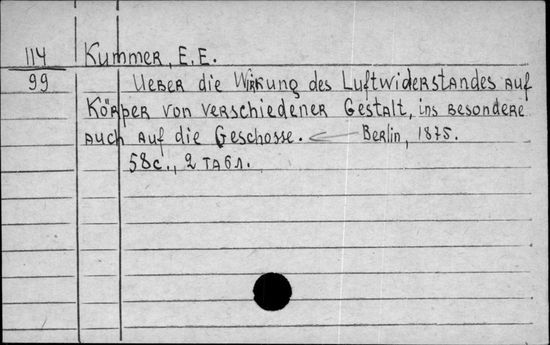 114 Kummer, E.E.
99 Ueber die Wirkung des Luftwiderstandes auf
Körper von verschiedener Gestalt, ins besondere
auch auf die Geschosse. Berlin, 1875.
58с., 2 табл.